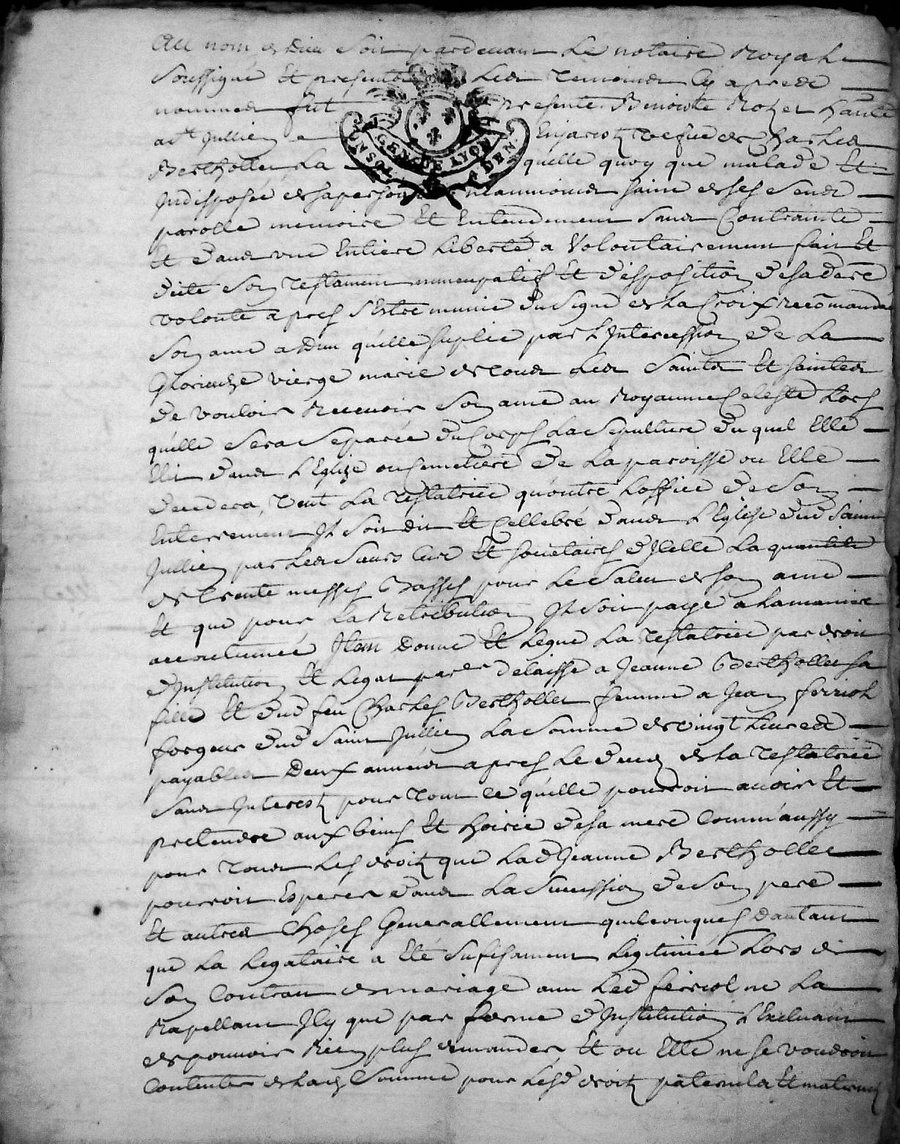 Au nom de Dieu soit pardevant Le notaire Royal
soussigné Et presents Les Temoins Cy apres
nommes fut presente Benoiste
a St Jullien veufve de Charles
GEN. DE LYON
Berthollet La quelle quoy que malade Et
Indisposée de sa personne neanmoins saine de ses sens
parolle memoire Et Entendement sans Contrainte
Et dans une Entiere Liberté a Volontairement fait Et
dicté son Testament nuncupatif Et disposition de sa dere
volonté apres s'Estre munie du signe de La Croix recommandé
son ame a Dieu quelle suplie par L'Intercession de La
Glorieuse vierge marie de tous Les Saints Et saintes
de vouloir Recevoir son ame au Royaume Celeste Lors
quelle sera separée du Corps La sepulture du quel Elle
Elit dans L'Eglize ou Cemetiere de La paroisse ou Elle
decedera, veut La Testatrice qu'outre Loffice de son
Enterrement Il soit dit Et Cellebré dans L'Eglise dud Saint
Jullien par Les Sieurs Curé Et societaires d'Icelle La quantité
de trente messes Basses pour Le Salut de son ame
Et que pour La Retribution Il soit payé a La maniere
accoutumée Item Donne Et Legue La Testatrice par droit
d'Institution Et Legat par delaisse a Jeanne Berthollet sa
fille Et dud feu Charles Berthollet femme a Jean ferriol
forgeur dud Saint Jullien La somme de vingt Livres
payables Deux années apres Le deces de La Testatrice
sans Interest pour tout ce quelle pourroit avoir Et
pretendre aux biens Et hoirie de sa mere Comm'aussy
pour tous Les droits que Lad Jeanne Berthollet
pourroit Esperer dans La Succession de son pere
Et autres Choses Generallement quelconques d'autant
que La Legataire a Eté sufisament Legitimée Lors de
son Contrat de mariage avec Led ferriol ne La
Rapellant Icy que par forme d'Institution L'Excluant
de pouvoir Rien plus demander, Et ou Elle ne se voudroit
Contenter de Lad Somme pour Lesd droits paternels Et maternels